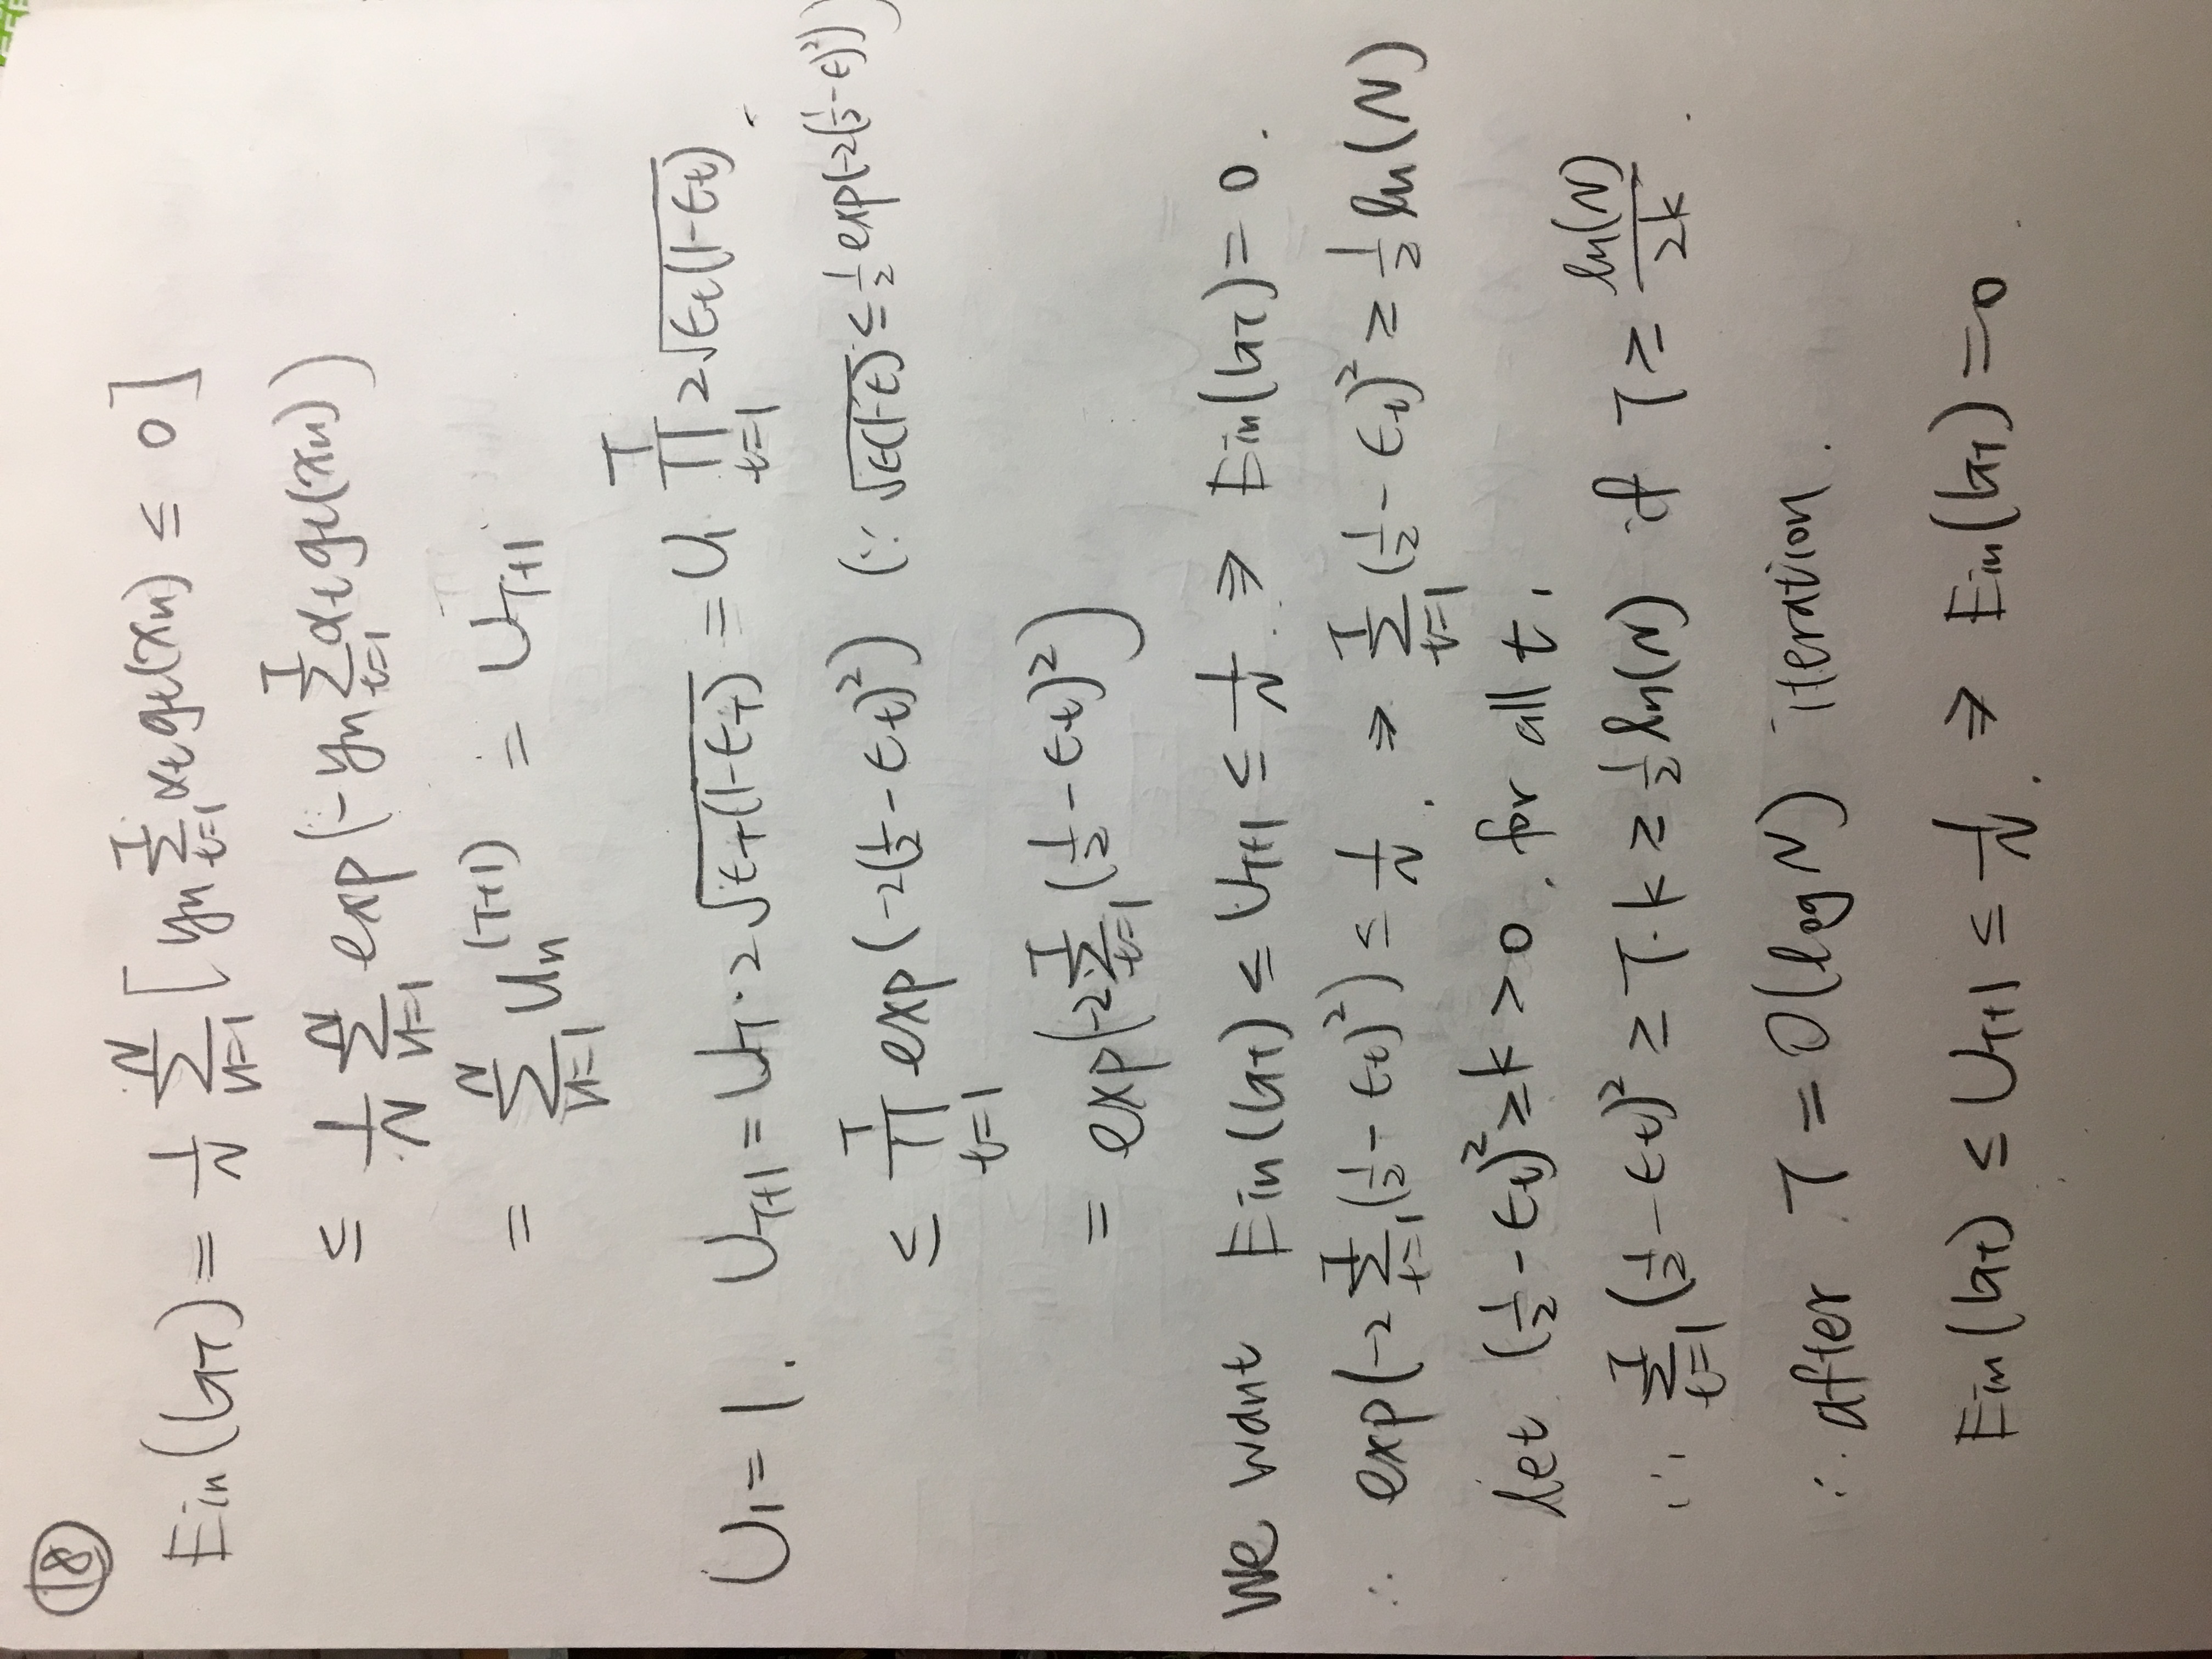 18
Ein(GT) = 1/N ∑_{n=1}^{N} [ yn ∑_{t=1}^{T} αt gt(xn) ≤ 0 ]
≤ 1/N ∑_{n=1}^{N} exp(- yn ∑_{t=1}^{T} αt gt(xn))
= ∑_{n=1}^{N} Un^{(T+1)} = U_{T+1}
U1 = 1. U_{T+1} = U_T · 2√(ϵT(1-ϵT)) = U1 ∏_{t=1}^{T} 2√(ϵt(1-ϵt)).
≤ ∏_{t=1}^{T} exp(-2(1/2 - ϵt)^2) (∵ √(ϵ(1-ϵ)) ≤ 1/2 exp(-2(1/2 - ϵ)^2))
= exp(-2 ∑_{t=1}^{T} (1/2 - ϵt)^2)
We want Ein(GT) ≤ U_{T+1} ≤ 1/N. ⇒ Ein(GT) = 0.
∴ exp(-2 ∑_{t=1}^{T} (1/2 - ϵt)^2) ≤ 1/N. ⇒ ∑_{t=1}^{T} (1/2 - ϵt)^2 ≥ 1/2 ln(N)
let (1/2 - ϵt)^2 ≥ k > 0. for all t.
∴ ∑_{t=1}^{T} (1/2 - ϵt)^2 ≥ T·k ≥ 1/2 ln(N) if T ≥ ln(N)/2k.
∴ after T = O(log N) iteration.
Ein(GT) ≤ U_{T+1} ≤ 1/N. ⇒ Ein(GT) = 0.